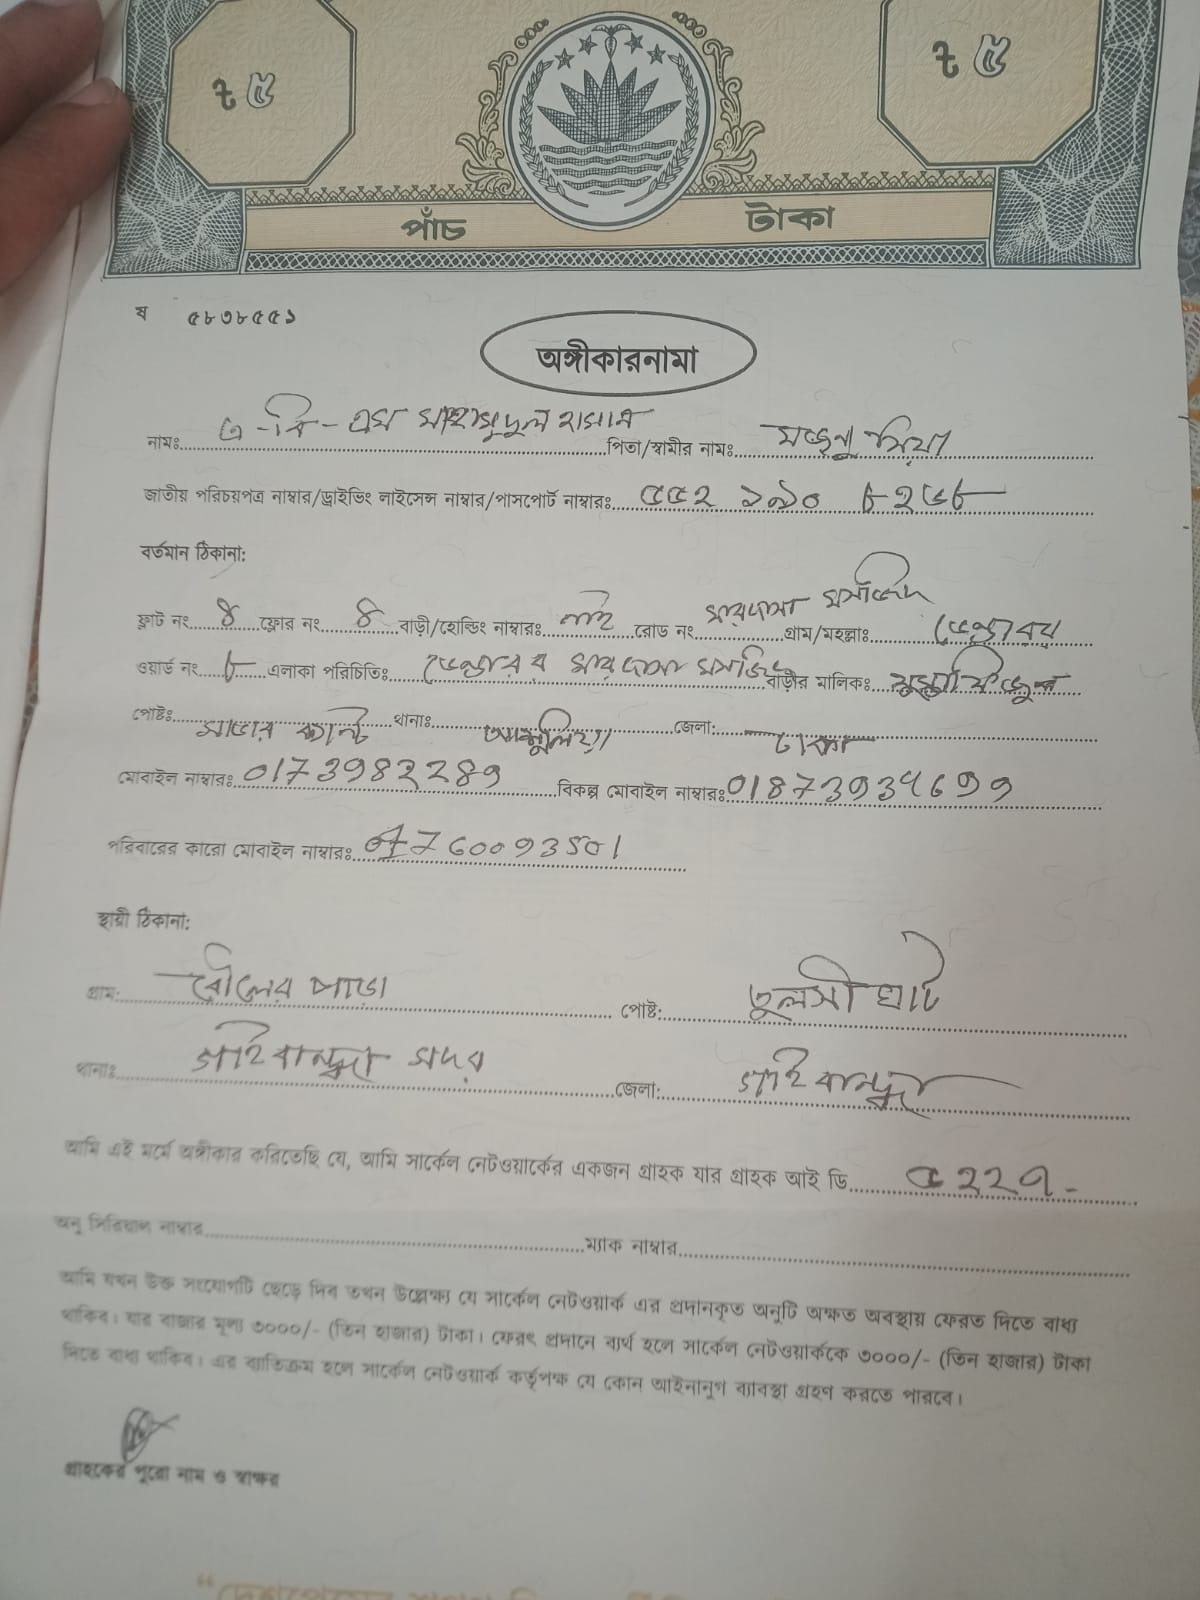 ৳ ৫ ৳ ৫
পাঁচ টাকা
ষ ৫৮৩৮৫৫১
অঙ্গীকারনামা
নামঃ এ-বি-এম মাহমুদুল হাসান পিতা/স্বামীর নামঃ মজনু মিয়া
জাতীয় পরিচয়পত্র নাম্বার/ড্রাইভিং লাইসেন্স নাম্বার/পাসপোর্ট নাম্বারঃ ৫৫২ ১৯১০ ৮২৬৮
বর্তমান ঠিকানা:
ফ্লাট নং ৪ ফ্লোর নং ৪ বাড়ী/হোল্ডিং নাম্বারঃ নাই রোড নং মাদ্রাসা মসজিদ গ্রাম/মহল্লাঃ
ওয়ার্ড নং ৮ এলাকা পরিচিতিঃ মাদ্রাসা মসজিদ বাড়ীর মালিকঃ
পোষ্টঃ সাভার ক্যান্ট থানাঃ আশুলিয়া জেলা: ঢাকা
মোবাইল নাম্বারঃ 0173982289 বিকল্প মোবাইল নাম্বারঃ
পরিবারের কারো মোবাইল নাম্বারঃ
স্থায়ী ঠিকানা:
গ্রাম: পাড়া পোষ্ট: তুলসী ঘাট
থানাঃ গাইবান্ধা সদর জেলা: গাইবান্ধা
আমি এই মর্মে অঙ্গীকার করিতেছি যে, আমি সার্কেল নেটওয়ার্কের একজন গ্রাহক যার গ্রাহক আই ডি ৫২২৭-
অনু সিরিয়াল নাম্বার ম্যাক নাম্বার
আমি যখন উক্ত সংযোগটি ছেড়ে দিব তখন উল্লেক্ষ্য যে সার্কেল নেটওয়ার্ক এর প্রদানকৃত অনুটি অক্ষত অবস্থায় ফেরত দিতে বাধ্য
থাকিব। যার বাজার মূল্য ৩০০০/- (তিন হাজার) টাকা। ফেরৎ প্রদানে ব্যর্থ হলে সার্কেল নেটওয়ার্ককে ৩০০০/- (তিন হাজার) টাকা
দিতে বাধ্য থাকিব। এর ব্যাতিক্রম হলে সার্কেল নেটওয়ার্ক কর্তৃপক্ষ যে কোন আইনানুগ ব্যাবস্থা গ্রহণ করতে পারবে।
গ্রাহকের পুরো নাম ও স্বাক্ষর